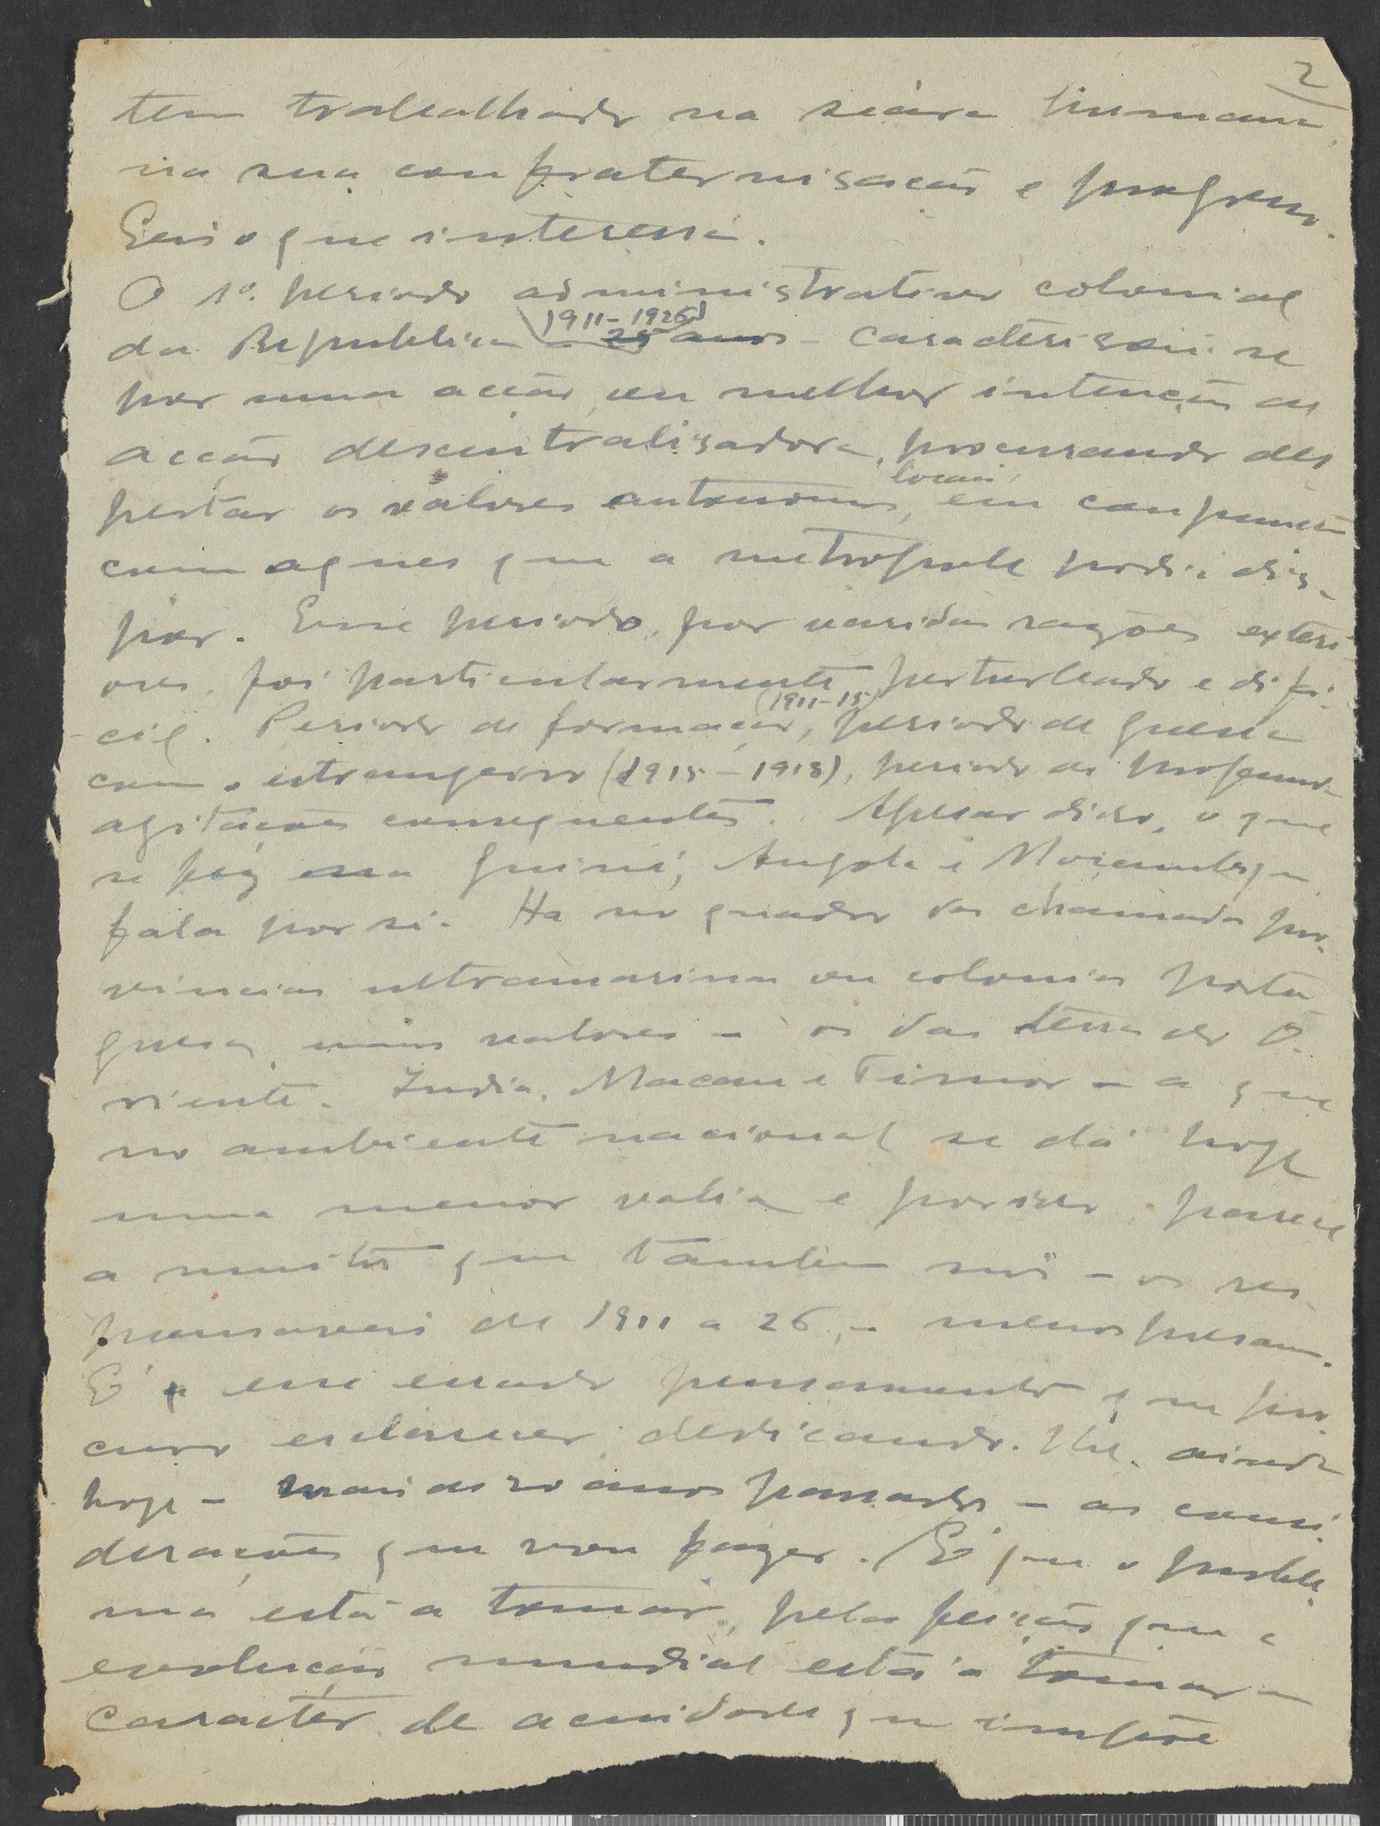 2
tem trabalhado na seára humana,
na sua confraternisação e progresso.
Eis o que interessa.
O 1º. periodo administrativo colonial
da Republica (1911-1926) 25 anos - caracterisou-se
por uma acção, ou melhor intenção de
acção descentralisadora, procurando des-
pertar os valores autonomos, locais, em conjunto
com aqueles que a metropole podia dis-
por. Esse periodo, por varias razões exteri-
ores, foi particularmente perturbado e difi-
cil. Periodo de formação (1911-15), periodo de guerra
com o estrangeiro (1915-1918), periodo de profundas
agitações consequentes. Apesar disso, o que
se fez na Guiné, Angola e Moçambique
fala por si. Ha no quadro das chamadas pro-
vincias ultramarinas ou colonias portu-
guesas, uns valores - os das terras do O-
riente. India, Macau e Timor - a que
no ambiente nacional se dá hoje
uma menor valia e por isso parece
a muitos que tambem nós - os res-
ponsaveis de 1911 a 26, - menospresamos.
É esse errado pensamento que pro-
curo esclarecer, dedicando-lhe, ainda
hoje - mais de 20 anos passados - as consi-
derações que vou fazer. É que o proble-
ma está a tomar, pela feição que a
evolução mundial está a tomar
caracter de acuidade que impõe